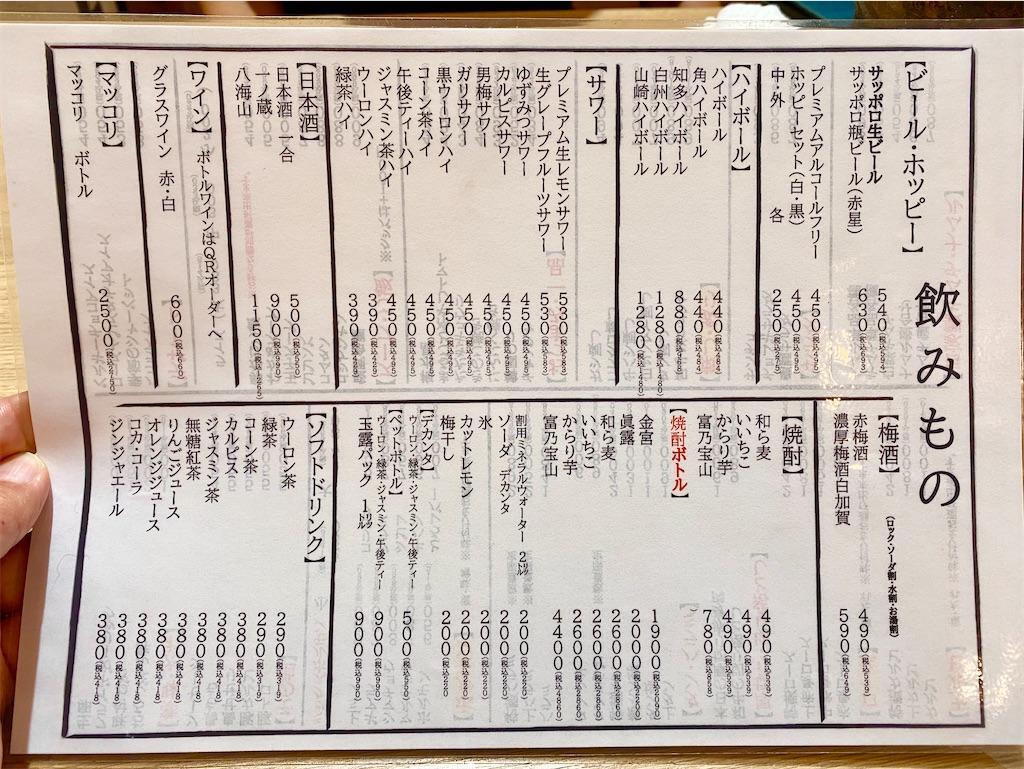 飲みもの
【ビール・ホッピー】
サッポロ生ビール 540(税込594)
サッポロ瓶ビール(赤星) 630(税込693)
プレミアムアルコールフリー 450(税込495)
ホッピーセット(白・黒) 450(税込495)
中・外 各 250(税込275)
【ハイボール】
ハイボール 440(税込484)
角ハイボール 440(税込484)
知多ハイボール 880(税込968)
白州ハイボール 1280(税込1480)
山崎ハイボール 1280(税込1480)
【サワー】
プレミアム生レモンサワー 530(税込583)
生グレープフルーツサワー 530(税込583)
ゆずみつサワー 450(税込495)
カルピスサワー 450(税込495)
男梅サワー 450(税込495)
ガリサワー 450(税込495)
黒ウーロンハイ 450(税込495)
コーン茶ハイ 450(税込495)
午後ティーハイ 450(税込495)
ジャスミン茶ハイ 450(税込495)
ウーロンハイ 390(税込429)
緑茶ハイ 390(税込429)
【日本酒】
日本酒 一合 500(税込550)
一ノ蔵 900(税込990)
八海山 1150(税込1265)
【ワイン】 ボトルワインはQRオーダーへ
グラスワイン 赤・白 600(税込660)
【マッコリ】
マッコリ ボトル 2500(税込2750)
【梅酒】 (ロック・ソーダ割・水割・お湯割)
赤梅酒 490(税込539)
濃厚梅酒白加賀 590(税込649)
【焼酎】
和ら麦 490(税込539)
いいちこ 490(税込539)
からり芋 490(税込539)
富乃宝山 780(税込858)
【焼酎ボトル】
金宮 1900(税込2090)
眞露 2000(税込2200)
和ら麦 2600(税込2860)
いいちこ 2600(税込2860)
からり芋 2600(税込2860)
富乃宝山 4400(税込4860)
割用ミネラルウォーター 2㍑ 200(税込220)
ソーダ デカンタ 200(税込220)
氷 200(税込220)
カットレモン 200(税込220)
梅干し 200(税込220)
【デカンタ】
ウーロン・緑茶・ジャスミン・午後ティー 500(税込550)
【ペットボトル】
ウーロン・緑茶・ジャスミン・午後ティー 900(税込990)
玉露パック 1㍑ 900(税込990)
【ソフトドリンク】
ウーロン茶 290(税込319)
緑茶 290(税込319)
コーン茶 380(税込418)
カルピス 380(税込418)
ジャスミン茶 380(税込418)
無糖紅茶 380(税込418)
りんごジュース 380(税込418)
オレンジジュース 380(税込418)
コカ・コーラ 380(税込418)
ジンジャエール 380(税込418)